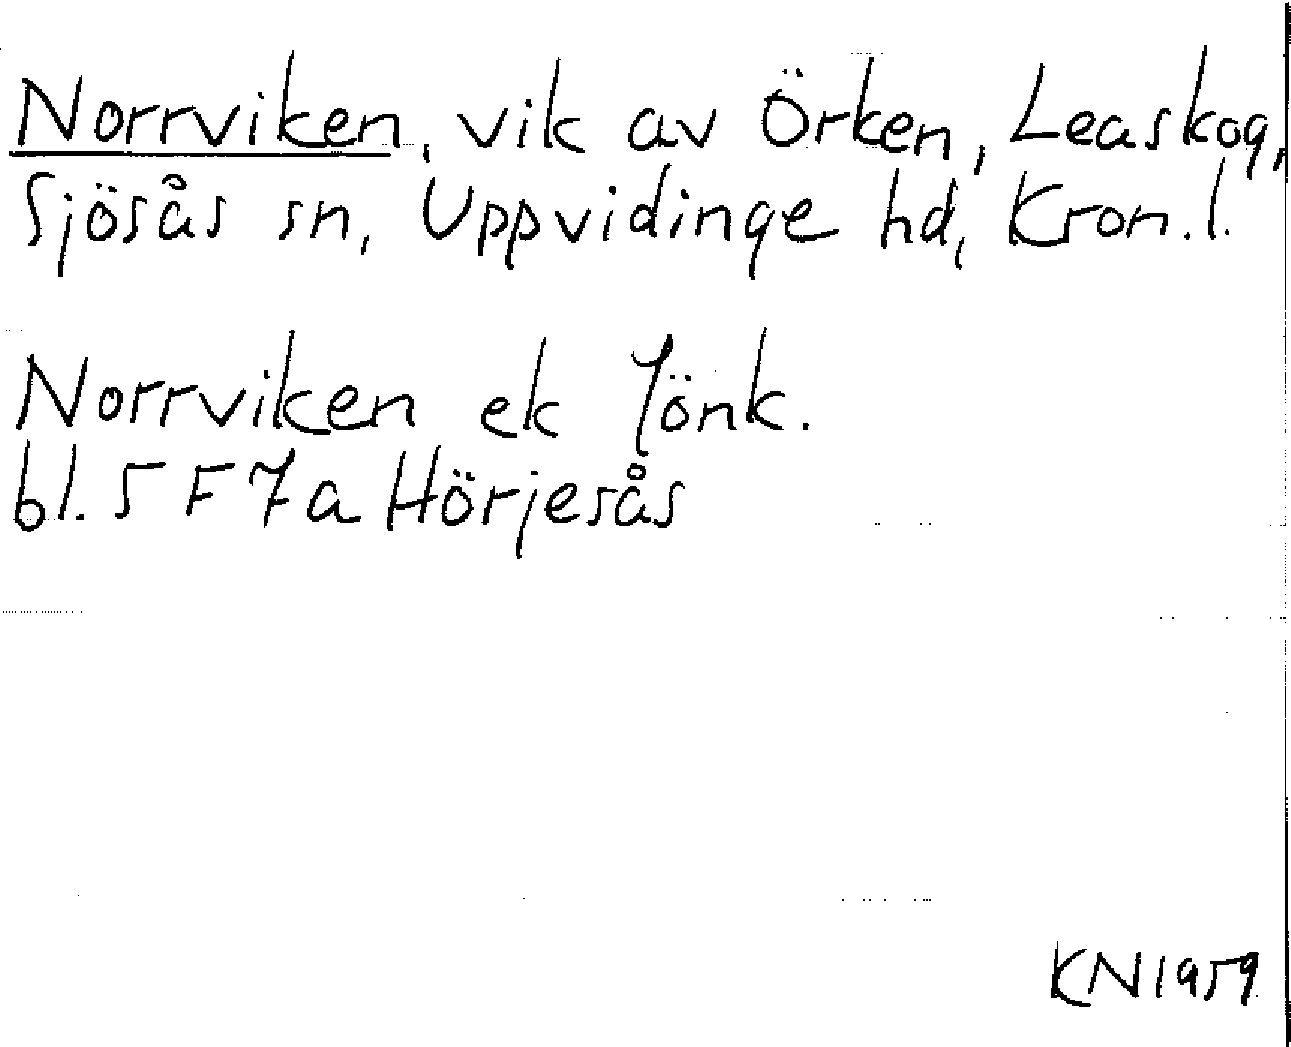 Norrviken, vik av Örken, Leaskog,
Sjösås sn, Uppvidinge hd, Kron.l.
Norrviken ek Jönk.
bl. 5 F 7 a Hörjesås
KN 1959